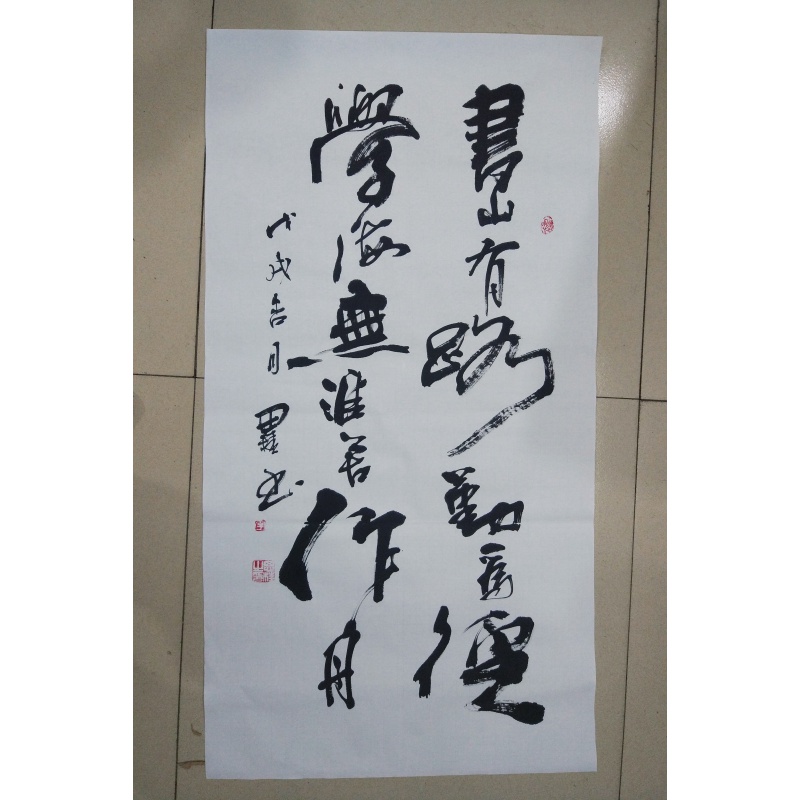 書山有路勤為徑
學海無涯苦作舟
戊戌杏月